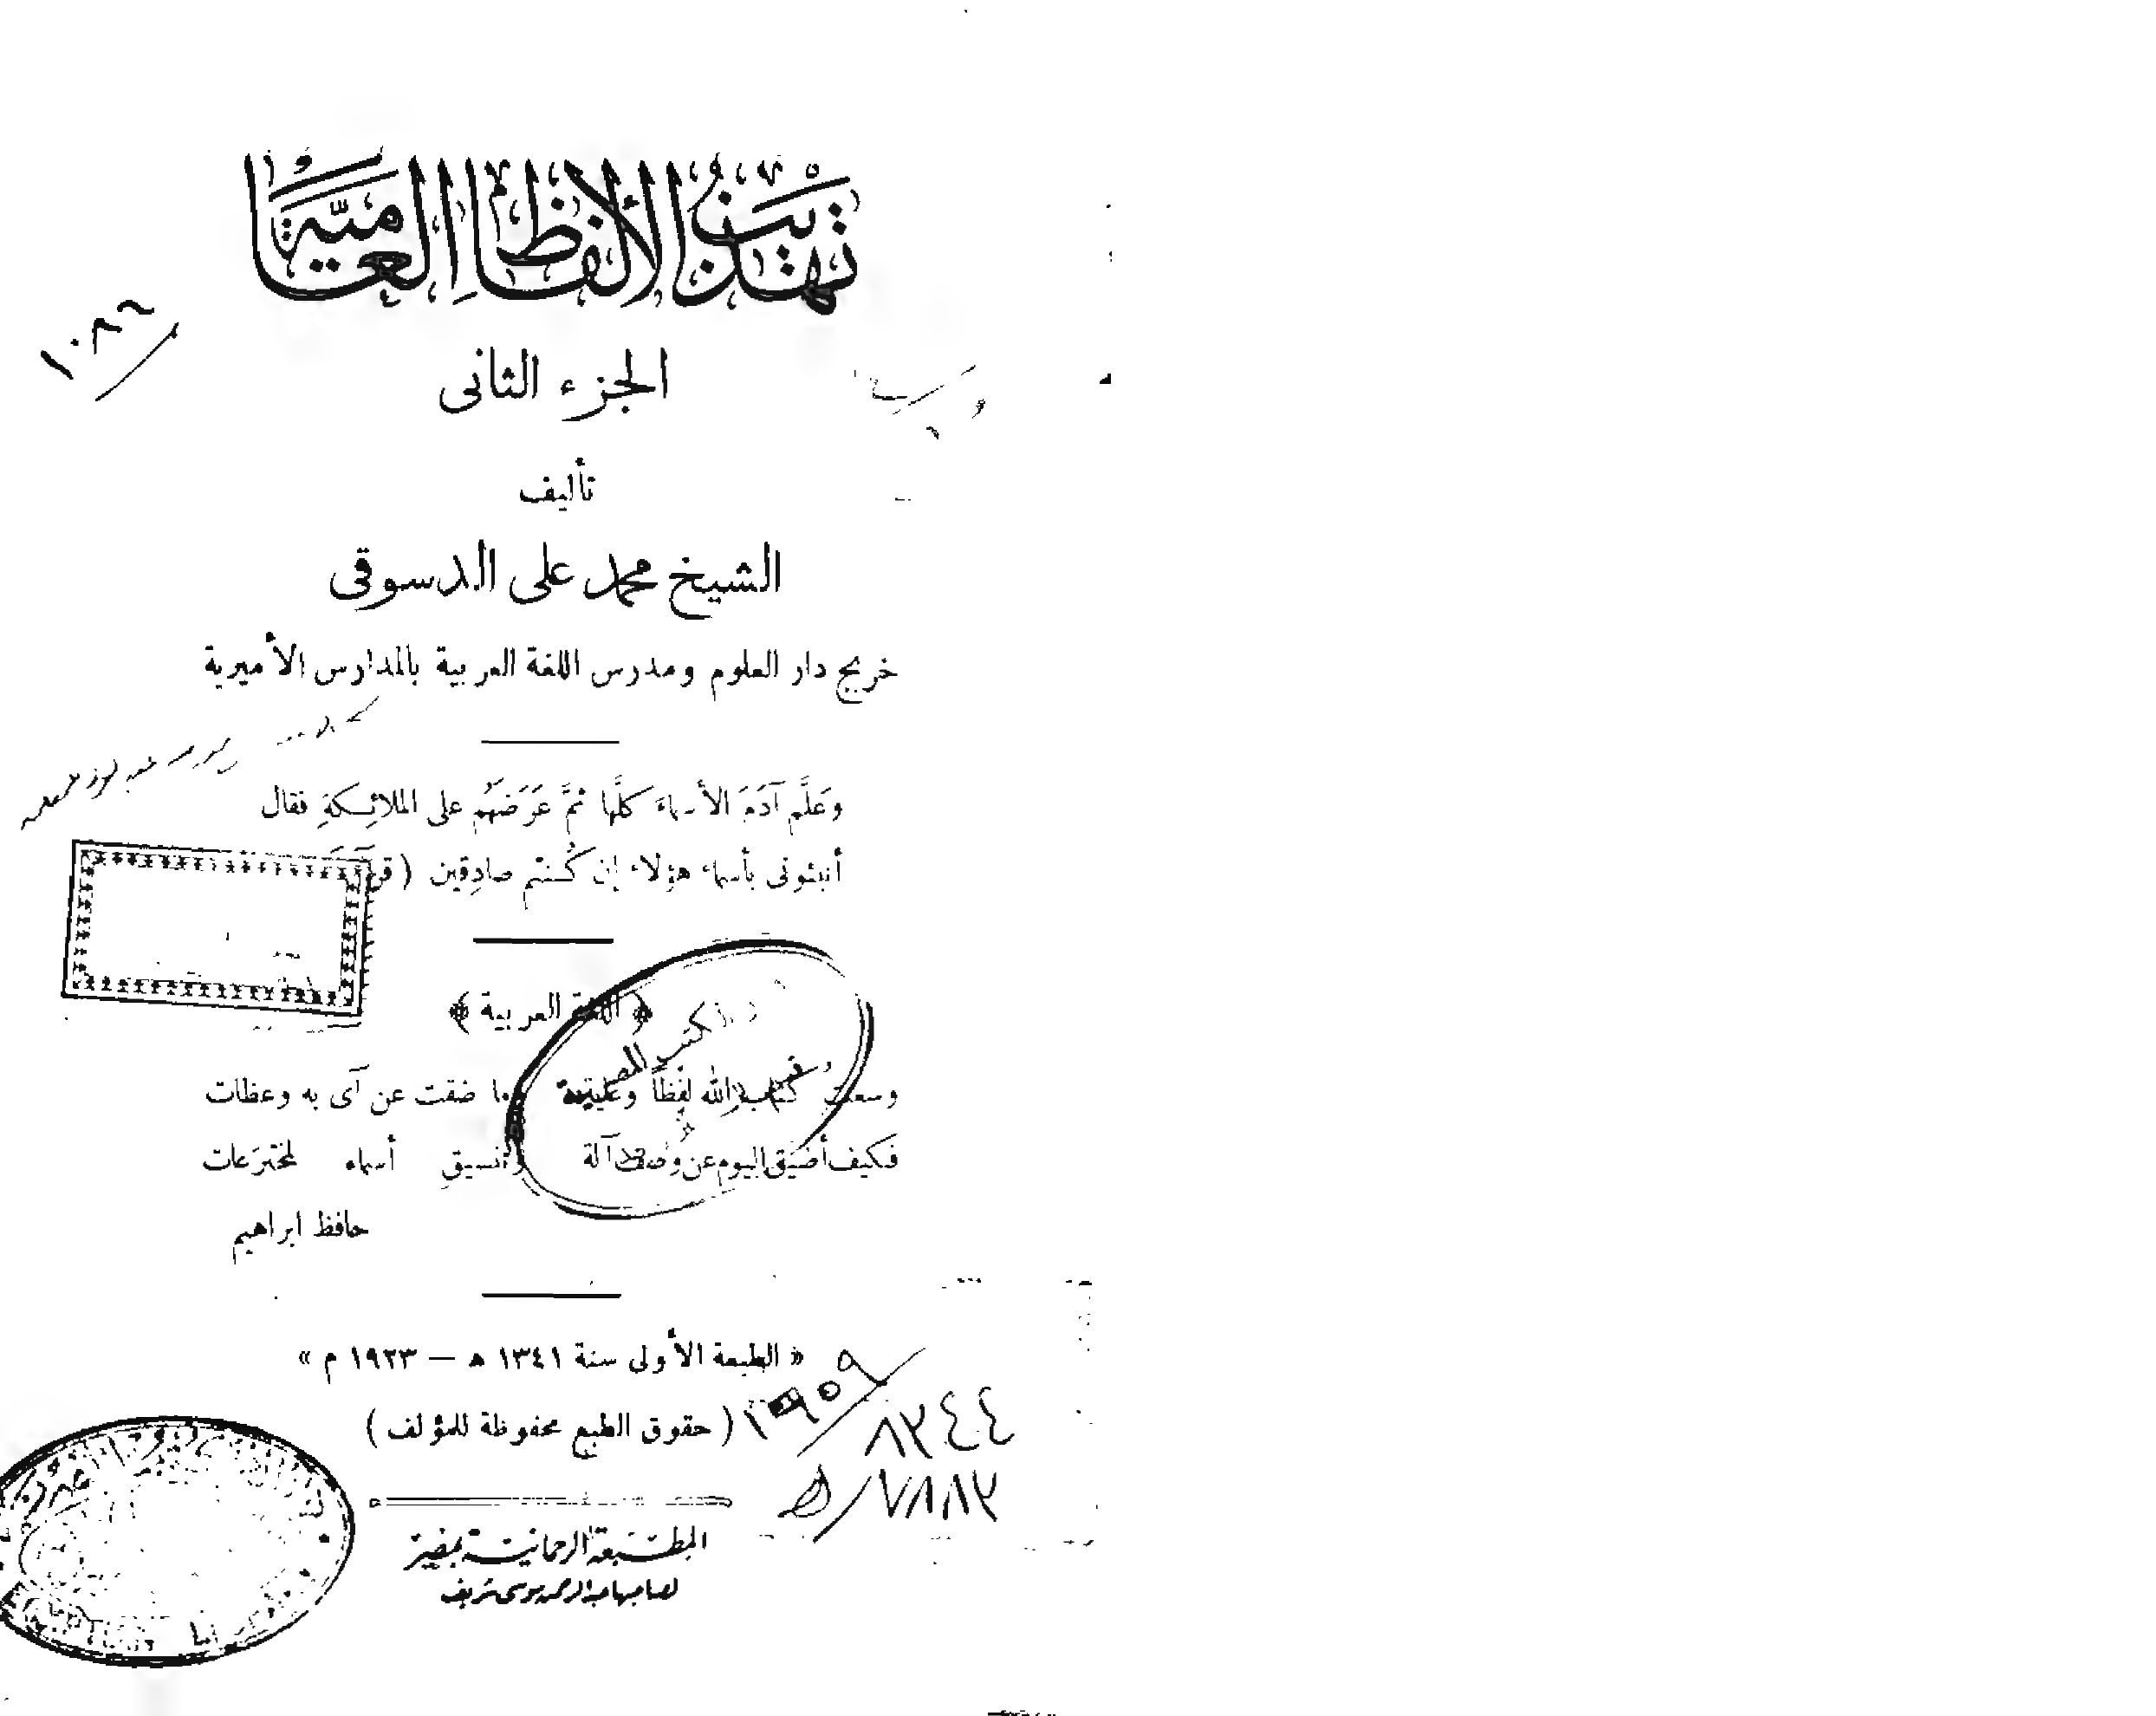 تهذيب الألفاظ العامية
١٠٨٦
الجزء الثانى
تأليف
الشيخ محمد على الدسوقى
خريج دار العلوم ومدرس اللغة العربية بالمدارس الأميرية
وَعَلَّم آدَمَ الأسماءَ كلَّها ثمَّ عَرَضَهُم على الملائِكةِ فقال
أنبئونى بأسماء هؤلاء إن كُنتم صادِقين (
﴿ اللغة العربية ﴾
وسعت كتاب الله لفظاً وغاية وما ضقت عن آى به وعظات
فكيف أضيق اليوم عن وصف آلة وتنسيق أسماء لمخترَعات
حافظ ابراهيم
« الطبعة الأولى سنة ١٣٤١ ه — ١٩٢٣ م »
( حقوق الطبع محفوظة للمؤلف )
٨٢٤٤
٧٨٨٢
المطبعة الرحمانية بمصر
لصاحبها عبد الرحمن موسى شريف